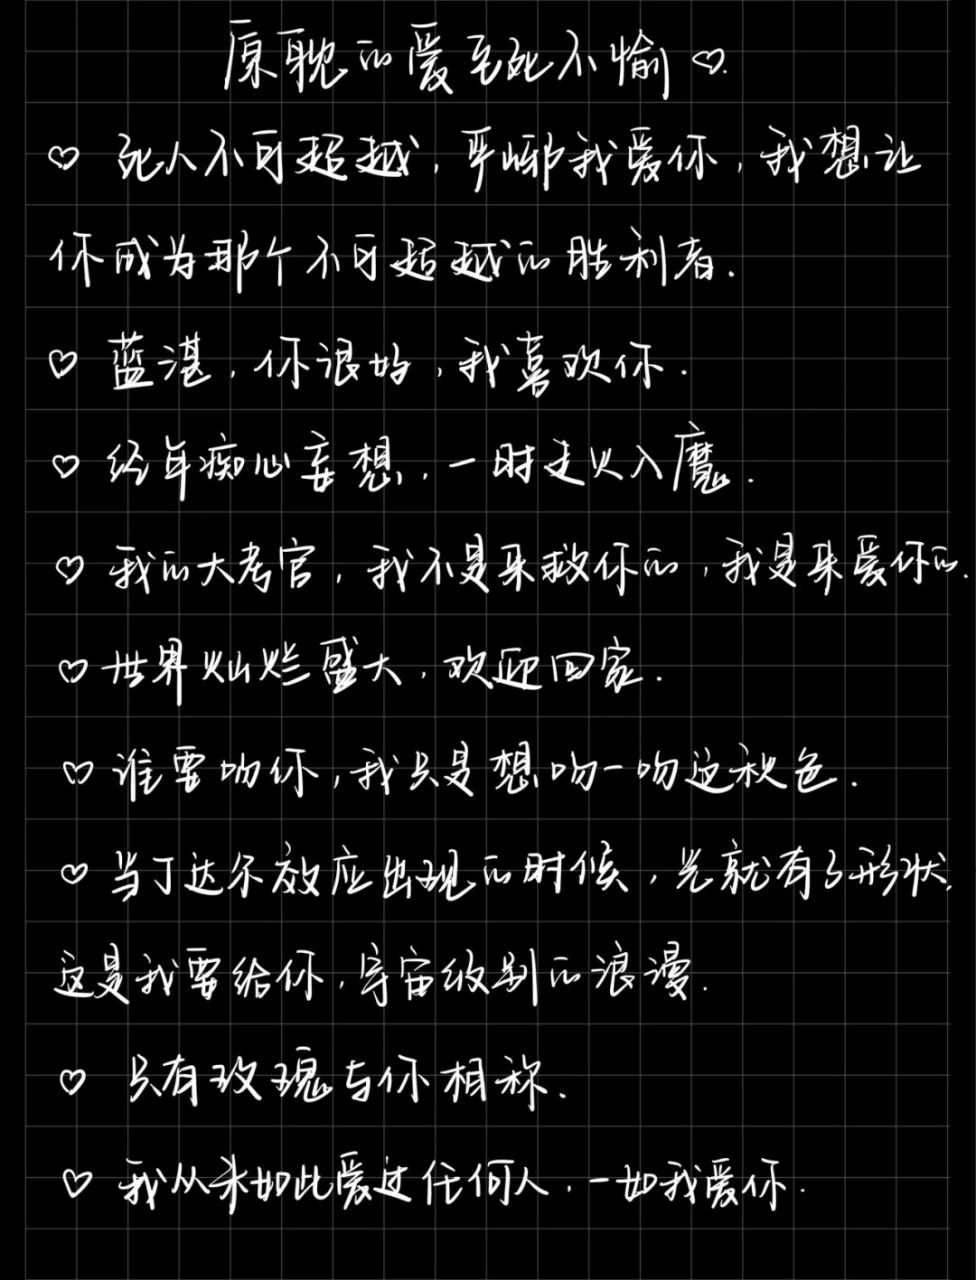 原耽的爱至死不愉♡.
♡ 死人不可超越,严峫我爱你,我想让
你成为那个不可超越的胜利者.
♡ 蓝湛,你很好,我喜欢你.
♡ 经年痴心妄想,一时走火入魔.
♡ 我的大考官,我不是来救你的,我是来爱你的.
♡ 世界灿烂盛大,欢迎回家.
♡ 谁要吻你,我只是想吻一吻这秋色.
♡ 当丁达尔效应出现的时候,光就有了形状,
这是我要给你,宇宙级别的浪漫.
♡ 只有玫瑰与你相称.
♡ 我从未如此爱过任何人,一如我爱你.